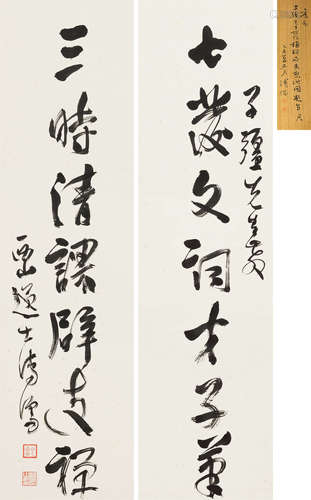 子彊先生教
七發文詞才子筆
三時清課辟支禪
西山逸士溥儒